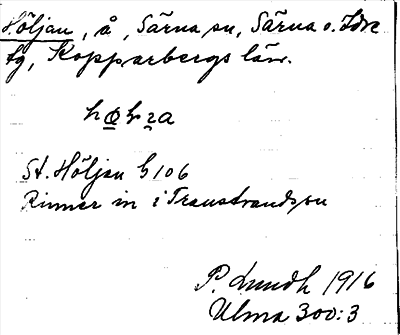 Höljan, å, Särna sn, Särna o. Idre
tg, Kopparbergs län.
St. Höljan G 106
Rinner in i Transtrands sn
P. Lundh 1916
Ulma 300:3